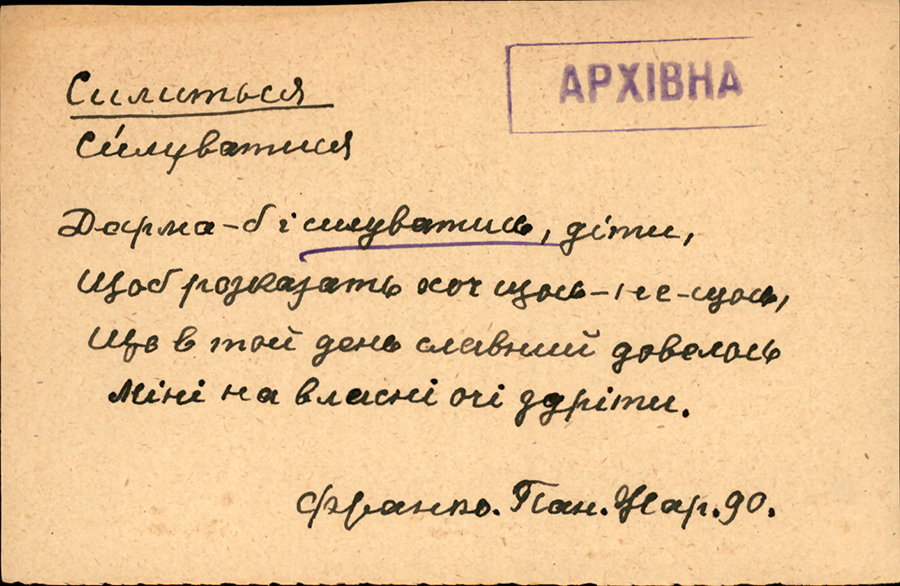 Силиться
АРХІВНА
Си́луватися
Дарма-б і силуватись, діти,
Щоб розказать хоч щось-не-щось,
Що в той день славний довелось
Міні на власні очі здріти.
Франко. Пан. Жар. 90.